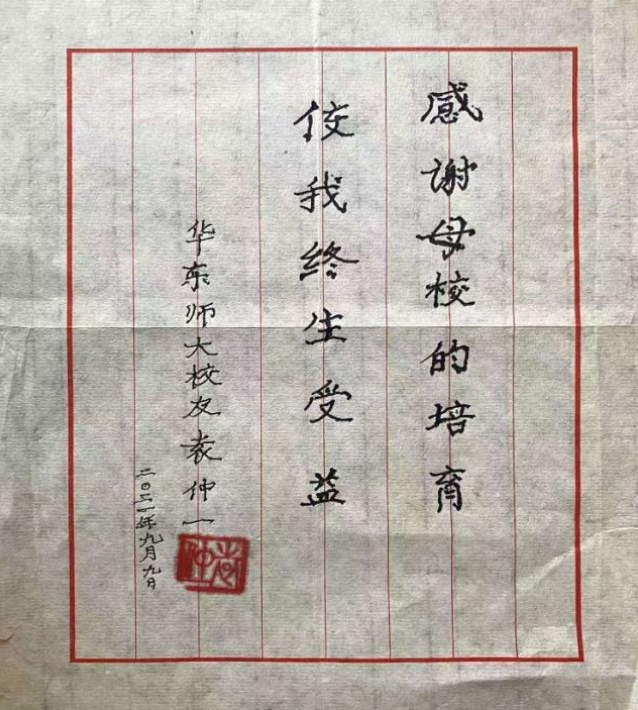 感謝母校的培育
使我終生受益
华东师大校友袁仲一
二〇二一年九月九日